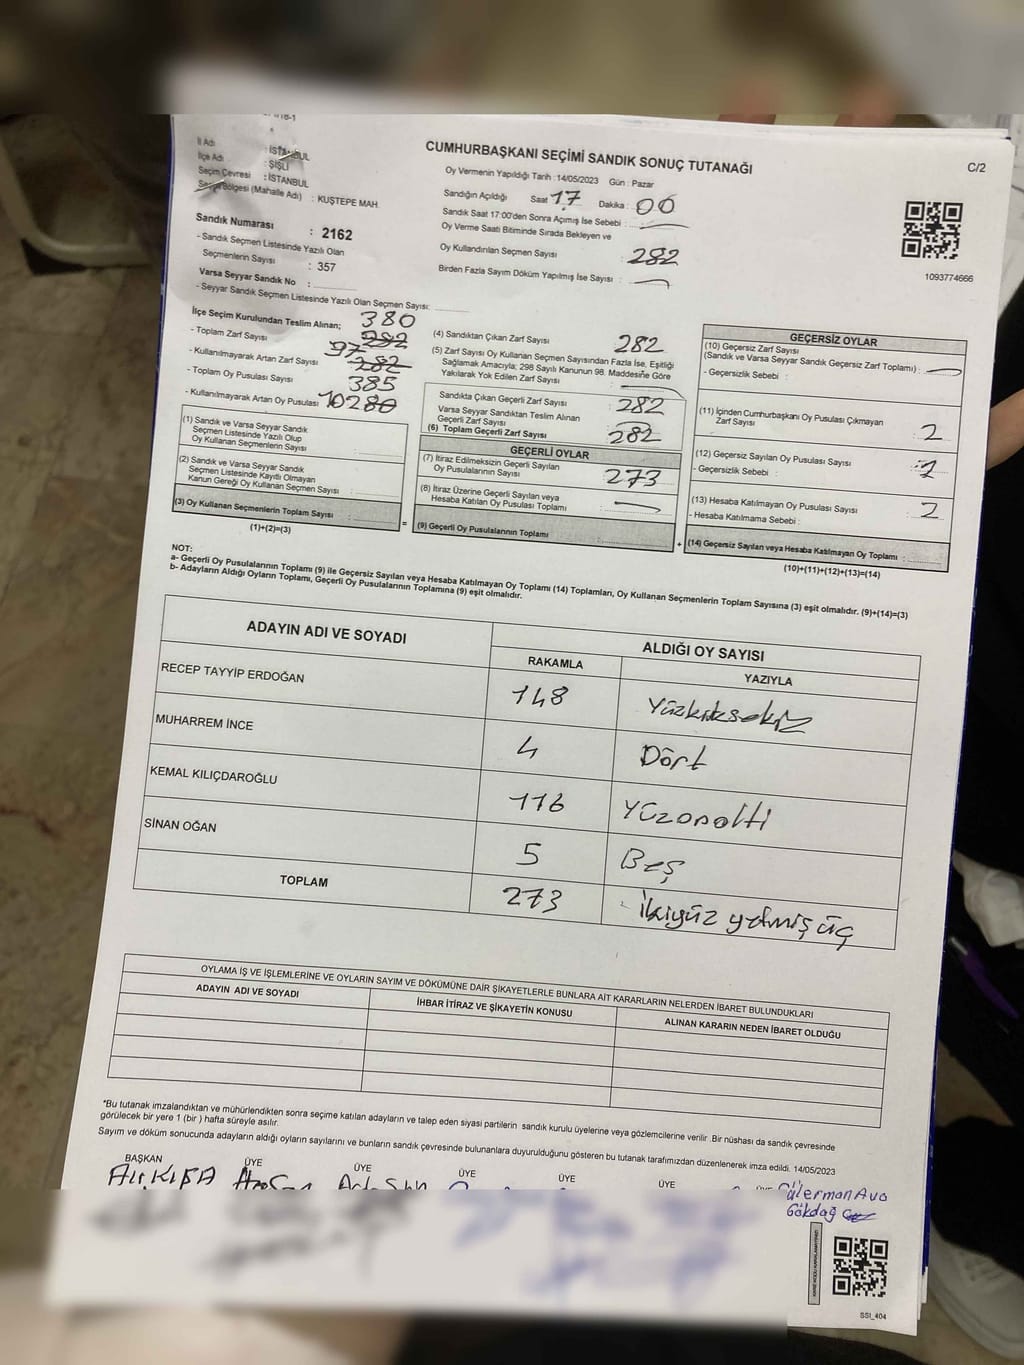 C/2
CUMHURBAŞKANI SEÇİMİ SANDIK SONUÇ TUTANAĞI
İl Adı : İSTANBUL
İlçe Adı : ŞİŞLİ
Seçim Çevresi : İSTANBUL
Seçim Bölgesi (Mahalle Adı) : KUŞTEPE MAH.
Sandık Numarası : 2162
- Sandık Seçmen Listesinde Yazılı Olan
Seçmenlerin Sayısı : 357
Varsa Seyyar Sandık No :
- Seyyar Sandık Seçmen Listesinde Yazılı Olan Seçmen Sayısı:
Oy Vermenin Yapıldığı Tarih : 14/05/2023 Gün : Pazar
Sandığın Açıldığı Saat 17 Dakika : 00
Sandık Saat 17:00'den Sonra Açımış İse Sebebi :
Oy Verme Saati Bitiminde Sırada Bekleyen ve
Oy Kullandırılan Seçmen Sayısı : 282
Birden Fazla Sayım Döküm Yapılmış İse Sayısı :
1093774666
İlçe Seçim Kurulundan Teslim Alınan; 380
- Toplam Zarf Sayısı 282
- Kullanılmayarak Artan Zarf Sayısı 97 282
- Toplam Oy Pusulası Sayısı 385
- Kullanılmayarak Artan Oy Pusulası
(1) Sandık ve Varsa Seyyar Sandık
Seçmen Listesinde Yazılı Olup
Oy Kullanan Seçmenlerin Sayısı :
(2) Sandık ve Varsa Seyyar Sandık
Seçmen Listesinde Kayıtlı Olmayan
Kanun Gereği Oy Kullanan Seçmen Sayısı :
(3) Oy Kullanan Seçmenlerin Toplam Sayısı :
(1)+(2)=(3)
(4) Sandıktan Çıkan Zarf Sayısı : 282
(5) Zarf Sayısı Oy Kullanan Seçmen Sayısından Fazla İse, Eşitliği
Sağlamak Amacıyla; 298 Sayılı Kanunun 98. Maddesine Göre
Yakılarak Yok Edilen Zarf Sayısı :
Sandıkta Çıkan Geçerli Zarf Sayısı : 282
Varsa Seyyar Sandıktan Teslim Alınan
Geçerli Zarf Sayısı :
(6) Toplam Geçerli Zarf Sayısı : 282
GEÇERLİ OYLAR
(7) İtiraz Edilmeksizin Geçerli Sayılan
Oy Pusulalarının Sayısı : 273
(8) İtiraz Üzerine Geçerli Sayılan veya
Hesaba Katılan Oy Pusulası Toplamı :
(9) Geçerli Oy Pusulalarının Toplamı :
GEÇERSİZ OYLAR
(10) Geçersiz Zarf Sayısı
(Sandık ve Varsa Seyyar Sandık Geçersiz Zarf Toplamı) :
- Geçersizlik Sebebi :
(11) İçinden Cumhurbaşkanı Oy Pusulası Çıkmayan
Zarf Sayısı : 2
(12) Geçersiz Sayılan Oy Pusulası Sayısı :
- Geçersizlik Sebebi :
(13) Hesaba Katılmayan Oy Pusulası Sayısı : 2
- Hesaba Katılmama Sebebi :
(14) Geçersiz Sayılan veya Hesaba Katılmayan Oy Toplamı :
(10)+(11)+(12)+(13)=(14)
NOT:
a- Geçerli Oy Pusulalarının Toplamı (9) ile Geçersiz Sayılan veya Hesaba Katılmayan Oy Toplamı (14) Toplamları, Oy Kullanan Seçmenlerin Toplam Sayısına (3) eşit olmalıdır. (9)+(14)=(3)
b- Adayların Aldığı Oyların Toplamı, Geçerli Oy Pusulalarının Toplamına (9) eşit olmalıdır.
ADAYIN ADI VE SOYADI ALDIĞI OY SAYISI
RAKAMLA YAZIYLA
RECEP TAYYİP ERDOĞAN 148 Yüzkırksekiz
MUHARREM İNCE 4 Dört
KEMAL KILIÇDAROĞLU 116 Yüzonaltı
SİNAN OĞAN 5 Beş
TOPLAM 273 İkiyüz yetmiş üç
OYLAMA İŞ VE İŞLEMLERİNE VE OYLARIN SAYIM VE DÖKÜMÜNE DAİR ŞİKAYETLERLE BUNLARA AİT KARARLARIN NELERDEN İBARET BULUNDUKLARI
ADAYIN ADI VE SOYADI İHBAR İTİRAZ VE ŞİKAYETİN KONUSU ALINAN KARARIN NEDEN İBARET OLDUĞU
*Bu tutanak imzalandıktan ve mühürlendikten sonra seçime katılan adayların ve talep eden siyasi partilerin sandık kurulu üyelerine veya gözlemcilerine verilir .Bir nüshası da sandık çevresinde
görülecek bir yere 1 (bir ) hafta süreyle asılır.
Sayım ve döküm sonucunda adayların aldığı oyların sayılarını ve bunların sandık çevresinde bulunanlara duyurulduğunu gösteren bu tutanak tarafımızdan düzenlenerek imza edildi. 14/05/2023
BAŞKAN ÜYE ÜYE ÜYE ÜYE ÜYE
Gökdağ
SSI_404